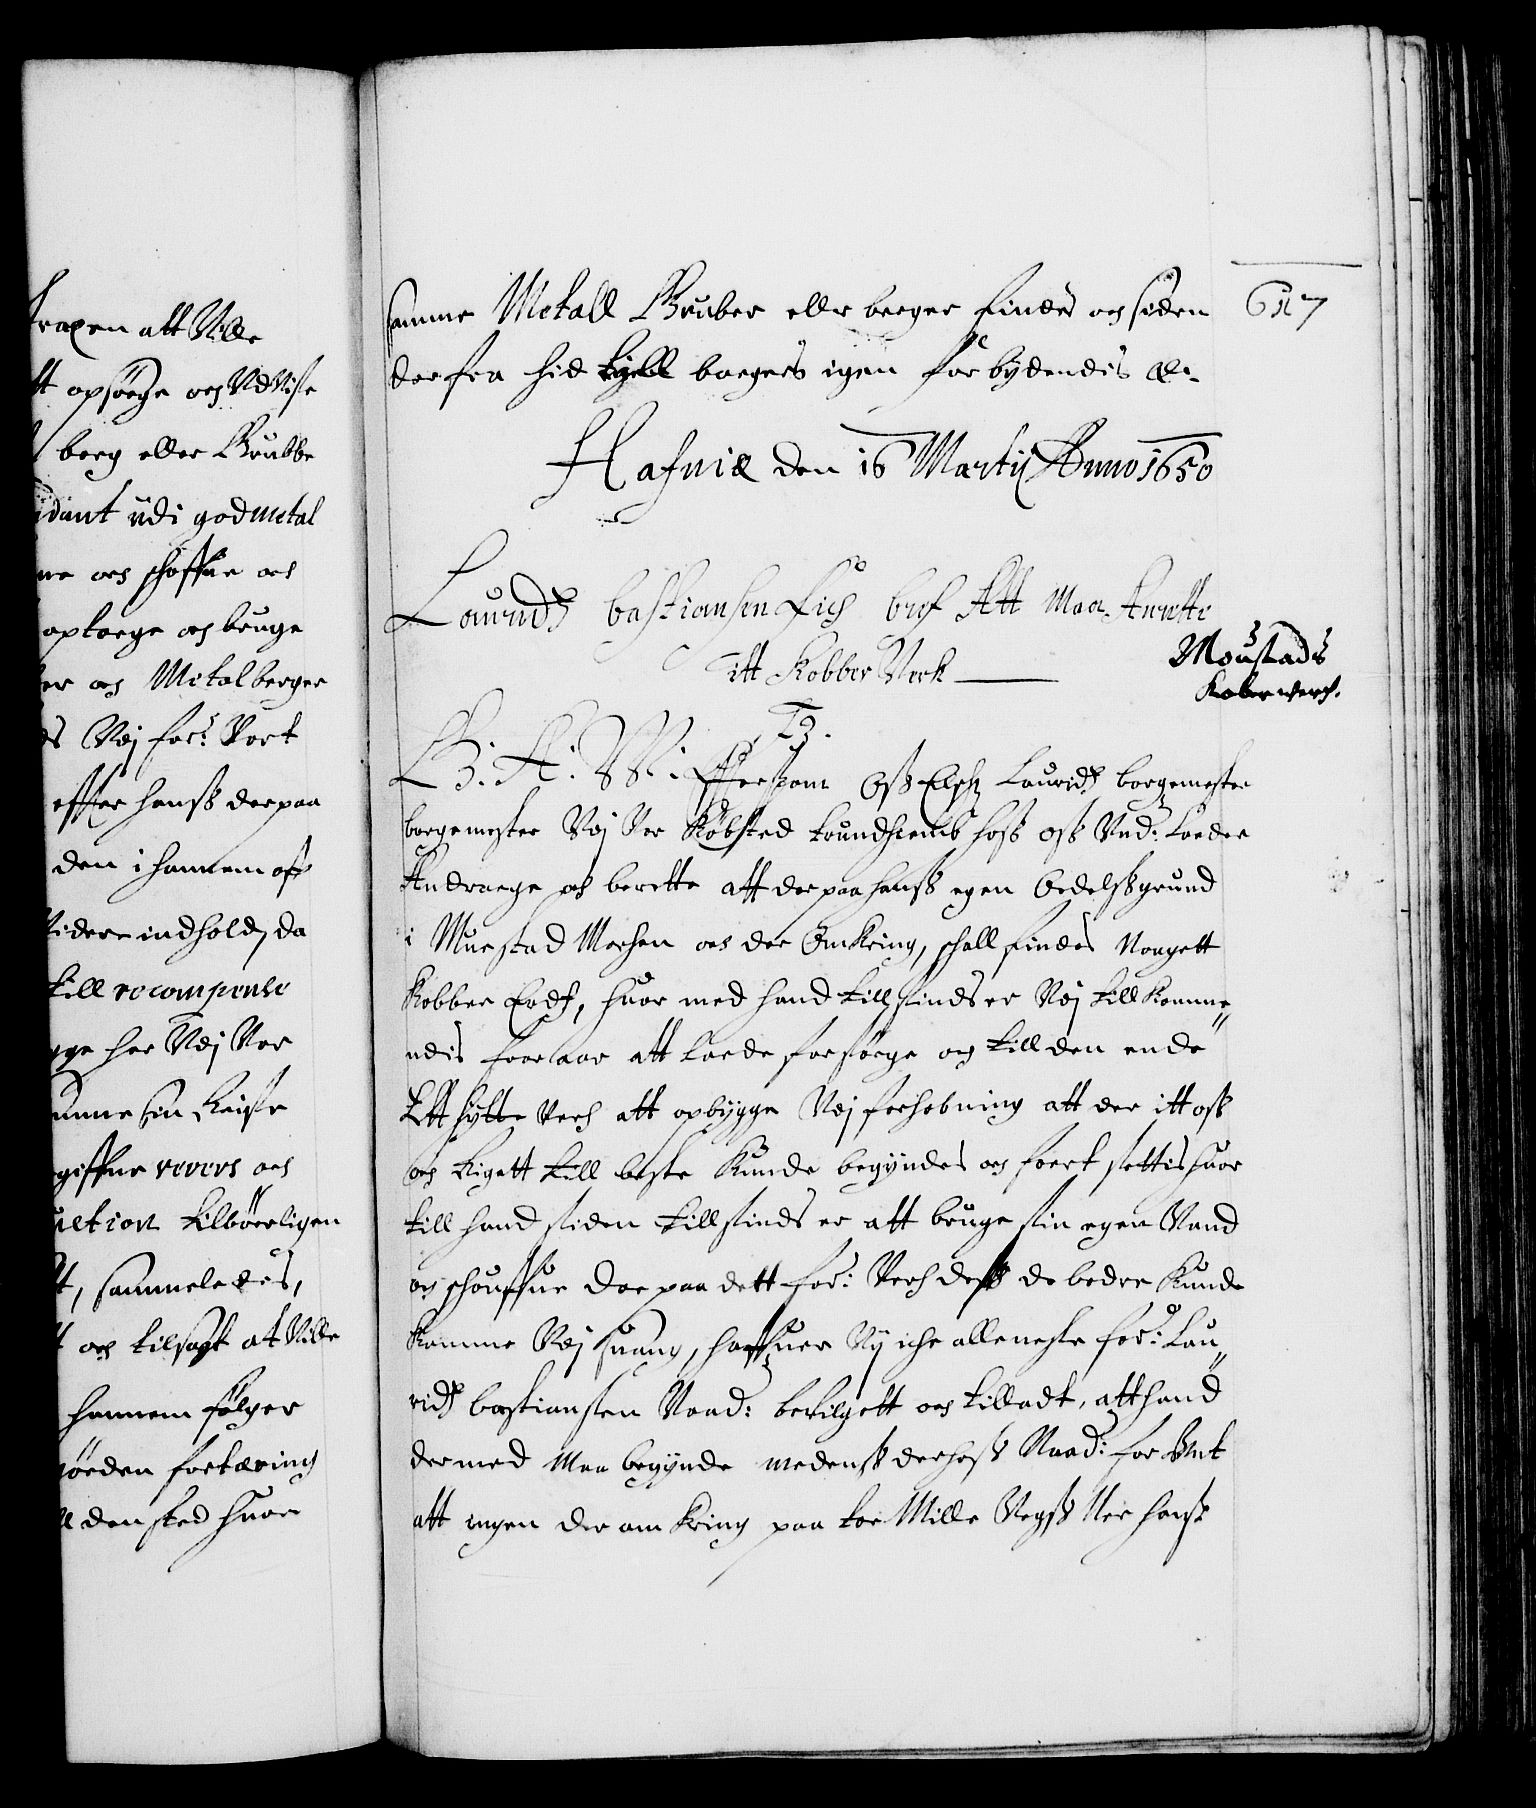 traxen att Ville
tt opsøege och Vdvise
berg eller Grubbe
idant udi god metal
ne och schaffue och
optage och bruge
er och Metal berger
Vej for: Vort
effter hanß derpaa
den i hannem oß
videre indhold, da
till recompense
her Vej Vor
sin Reise
giffne revers och
uction tilbørligen
t, sammeledes,
och tilsagt at Ville
hannem følger
nøeden fortæring
den sted huor
samme Metall Gruber eller berger findes och siden
der fra hid till bages igen forbydendis &c.
617
Hafniæ den 16 Martij Anno 1650
Lauridß bastiansen fich bref Att Maa Anrette
itt Kobber Verk
Moustads
Kober werch.
T3.
G: A: W: Effterßom Oß Elsch Lauridß borgemester
borgemester Vej Vor Købsted trundhiemb hoß oß Und: Lader
Andrage och berette att der paa hanß egen Odelßgrund
i Muestad Marchen och der Omkring, schall findes Noegett
Kobber Erdtz, huor med hand till sinds er Vej till Komme„
ndis foraar att lade forsøege och till den ende
Ett hytte Verch att opbygge Vej forhobning att der itt oß
och Riget till beste Kunde begyndes och foert settis huor
till hand siden till sinds er att bruge sin egen Vand
och schouffue Der paa dett for: Verch deß de bedre Kunde
Komme Vej suang, haffuer Vij iche alleneste for: Lau„
ridß bastiansen Naad: bevilgett och tilladt, att hand
der med Maa begynde medenß der hoß Naad: for Unt
att ingen der om Kring paa toe Mille Vegß Ner hanß